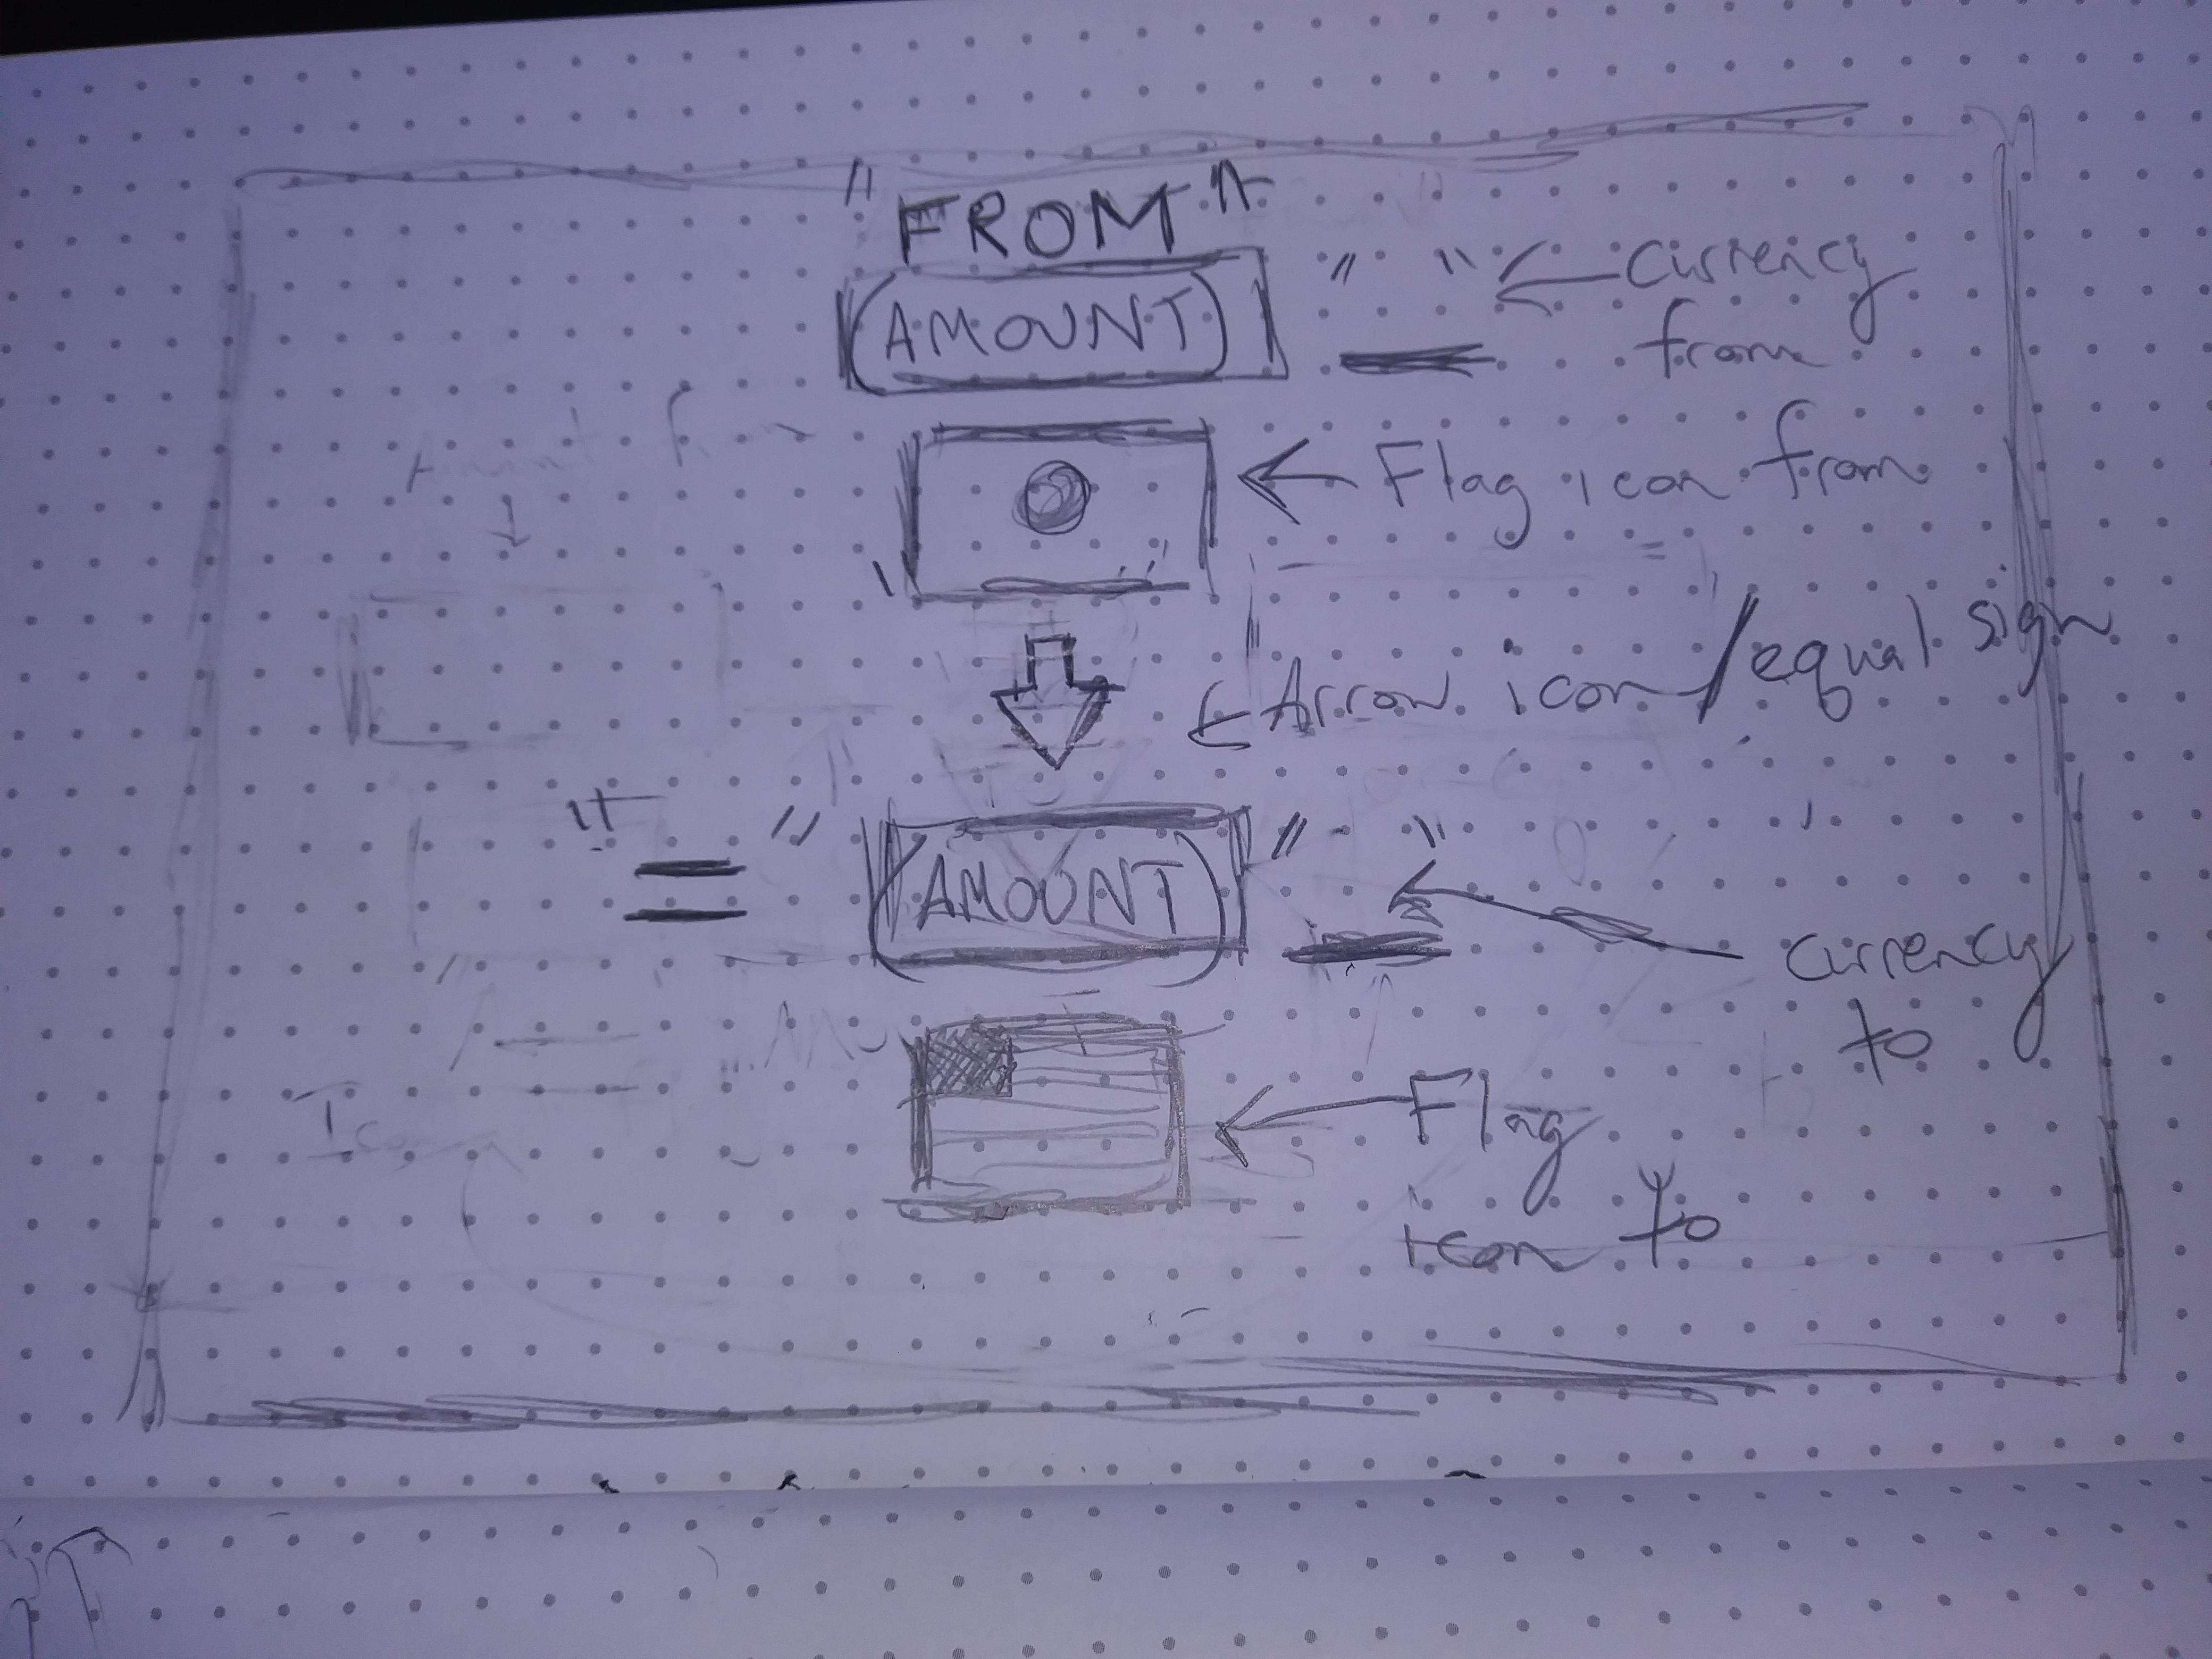 "FROM"
(AMOUNT) " " ← Currency
from
← Flag icon from
← Arrow icon/equal sign
"=" (AMOUNT) " " ←
Currency
to
← Flag
icon to